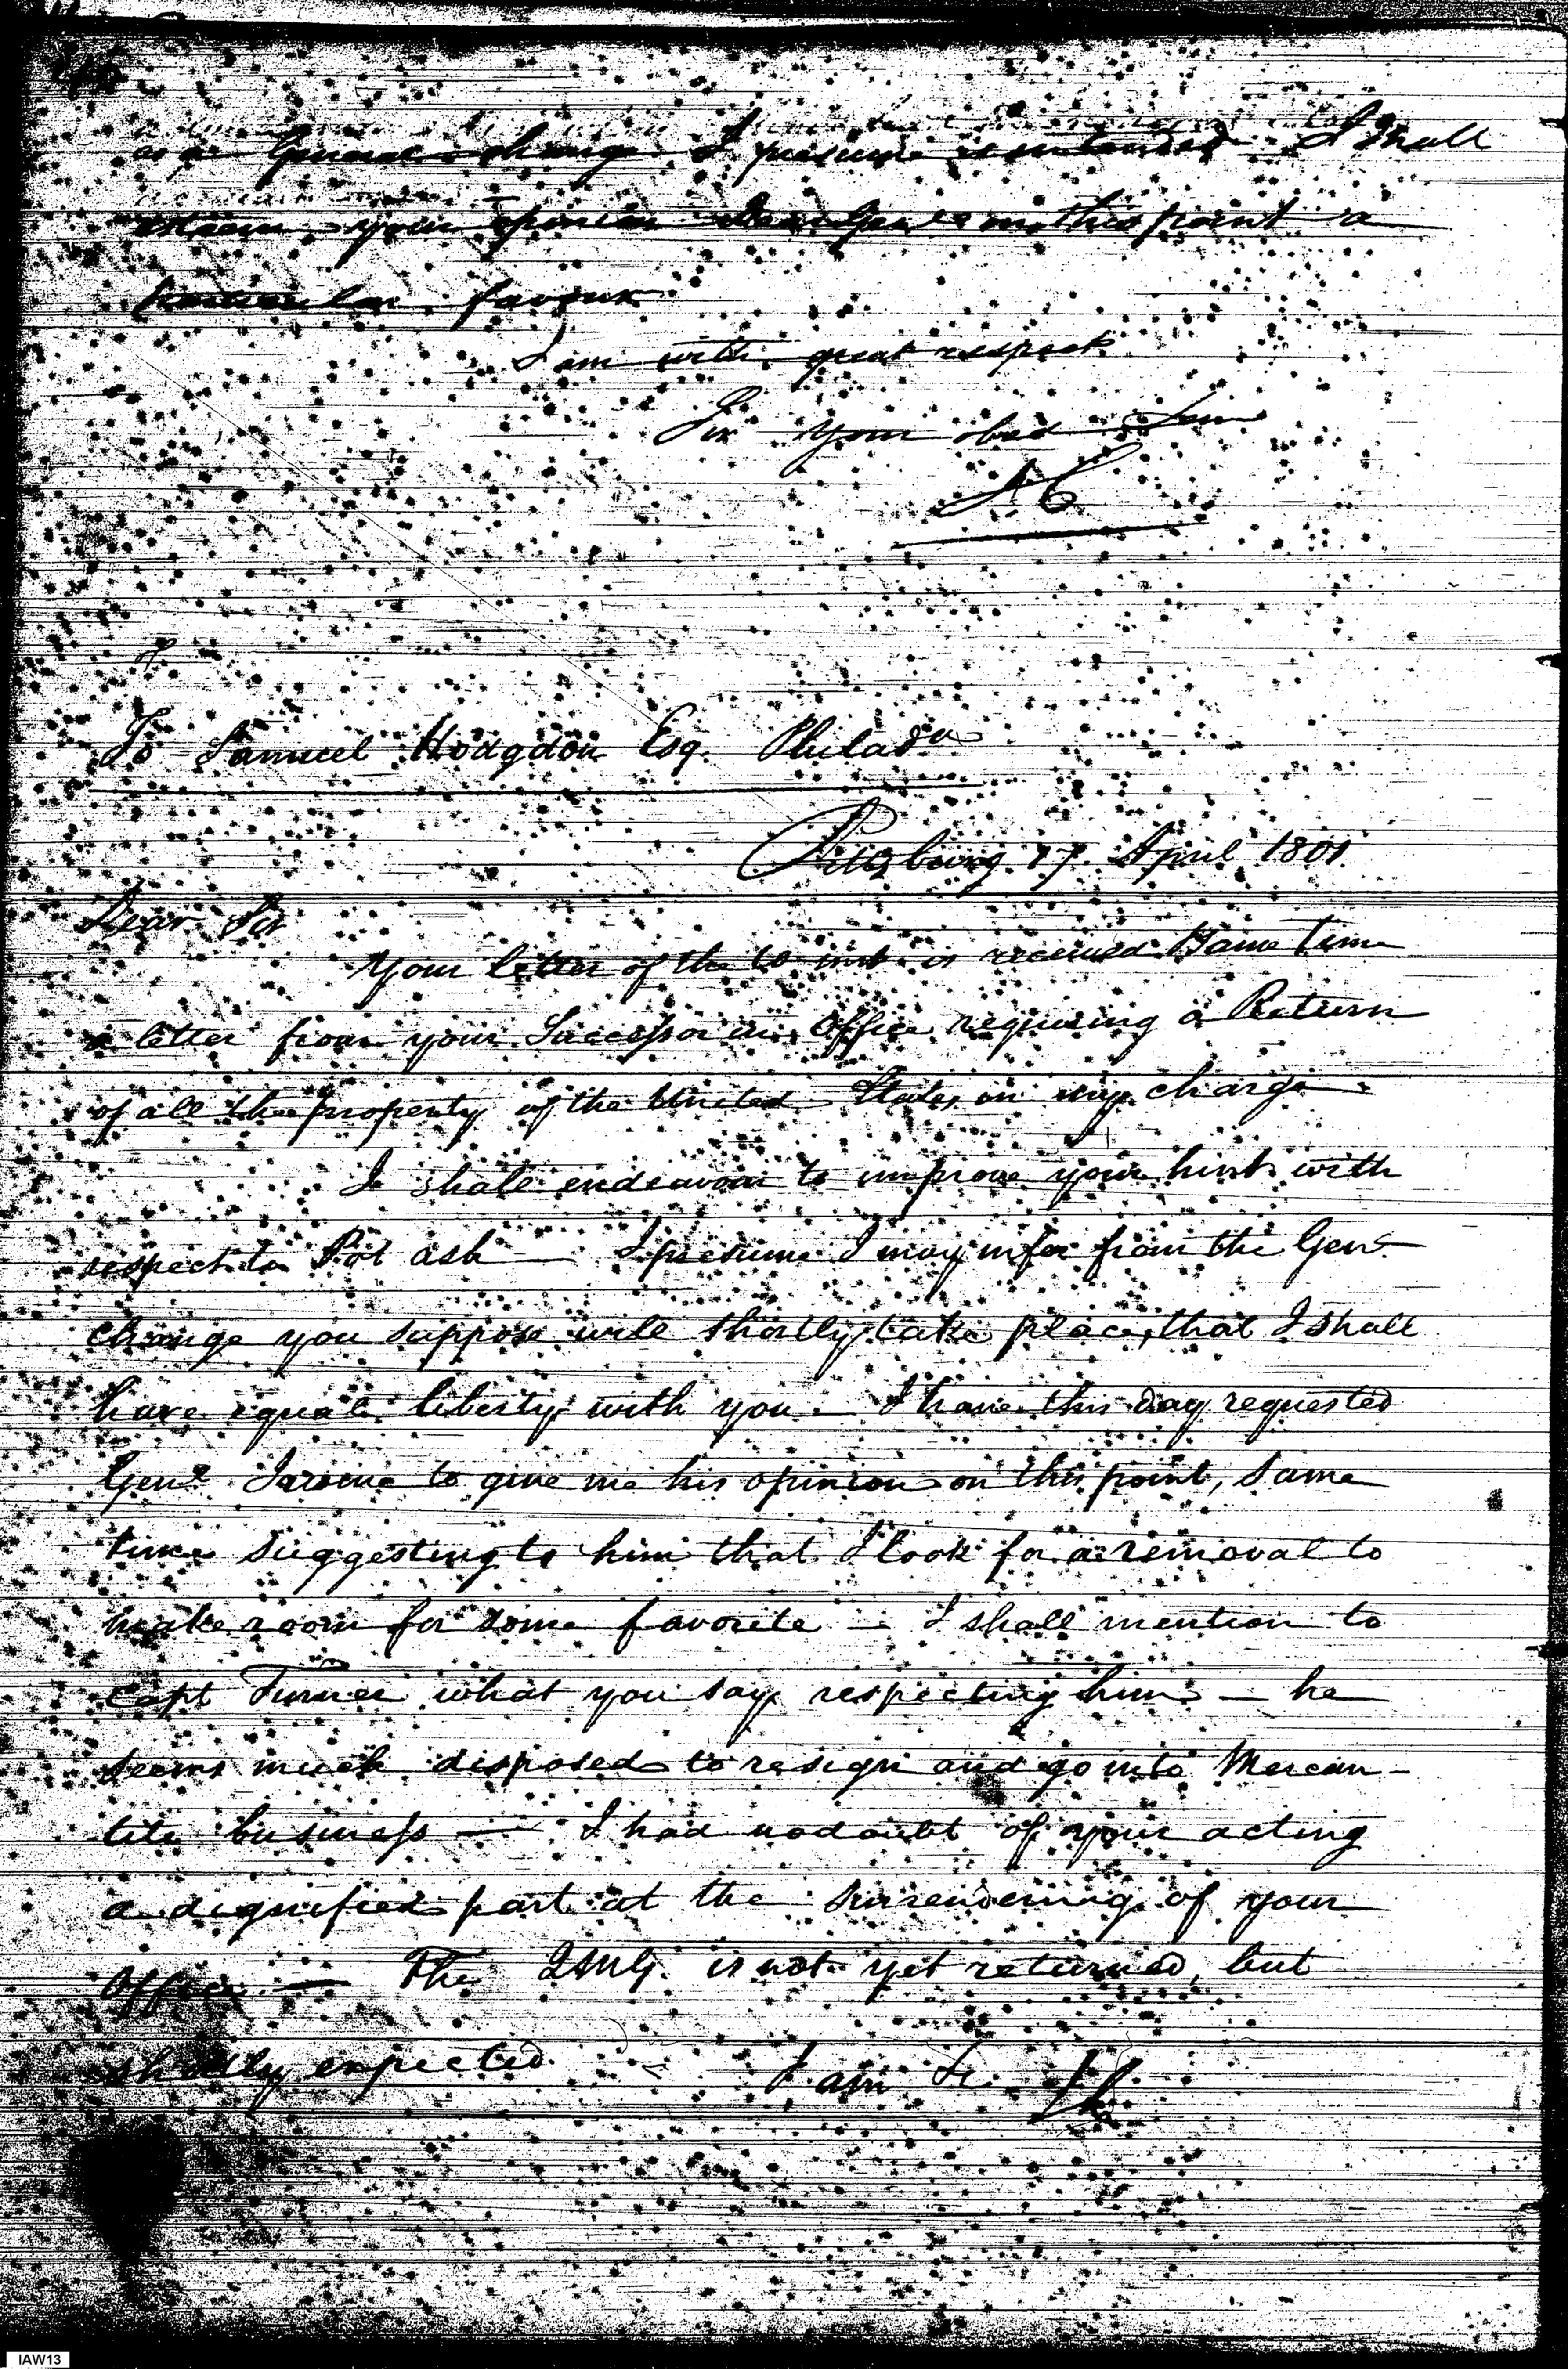 as a General change I presume is intended I shall
esteem your opinion Dear Gen on this point a
particular favour
I am with great respect
Sir your obed Serv
To Samuel Hodgdon Esq. Philada
Pittsburg 17 April 1801
Dear Sir
Your letter of the 10 inst is received Same time
a letter from your Successor in Office requiring a Return
of all the property of the United States in my charge
I shall endeavour to improve your hint with
respect to Pot ash — I presume I may infer from the Genl
change you suppose will shortly take place, that I shall
have equal liberty with you — I have this day requested
Genl Irvine to give me his opinion on this point, same
time suggesting to him that I look for a removal to
make room for some favorite — I shall mention to
Capt Turner what you say respecting him — he
seems much disposed to resign and go into Mercan-
tile business — I had no doubt of your acting
a dignified part at the surrendering of your
Office — The QMG. is not yet returned, but
shortly expected I am &c
IAW13